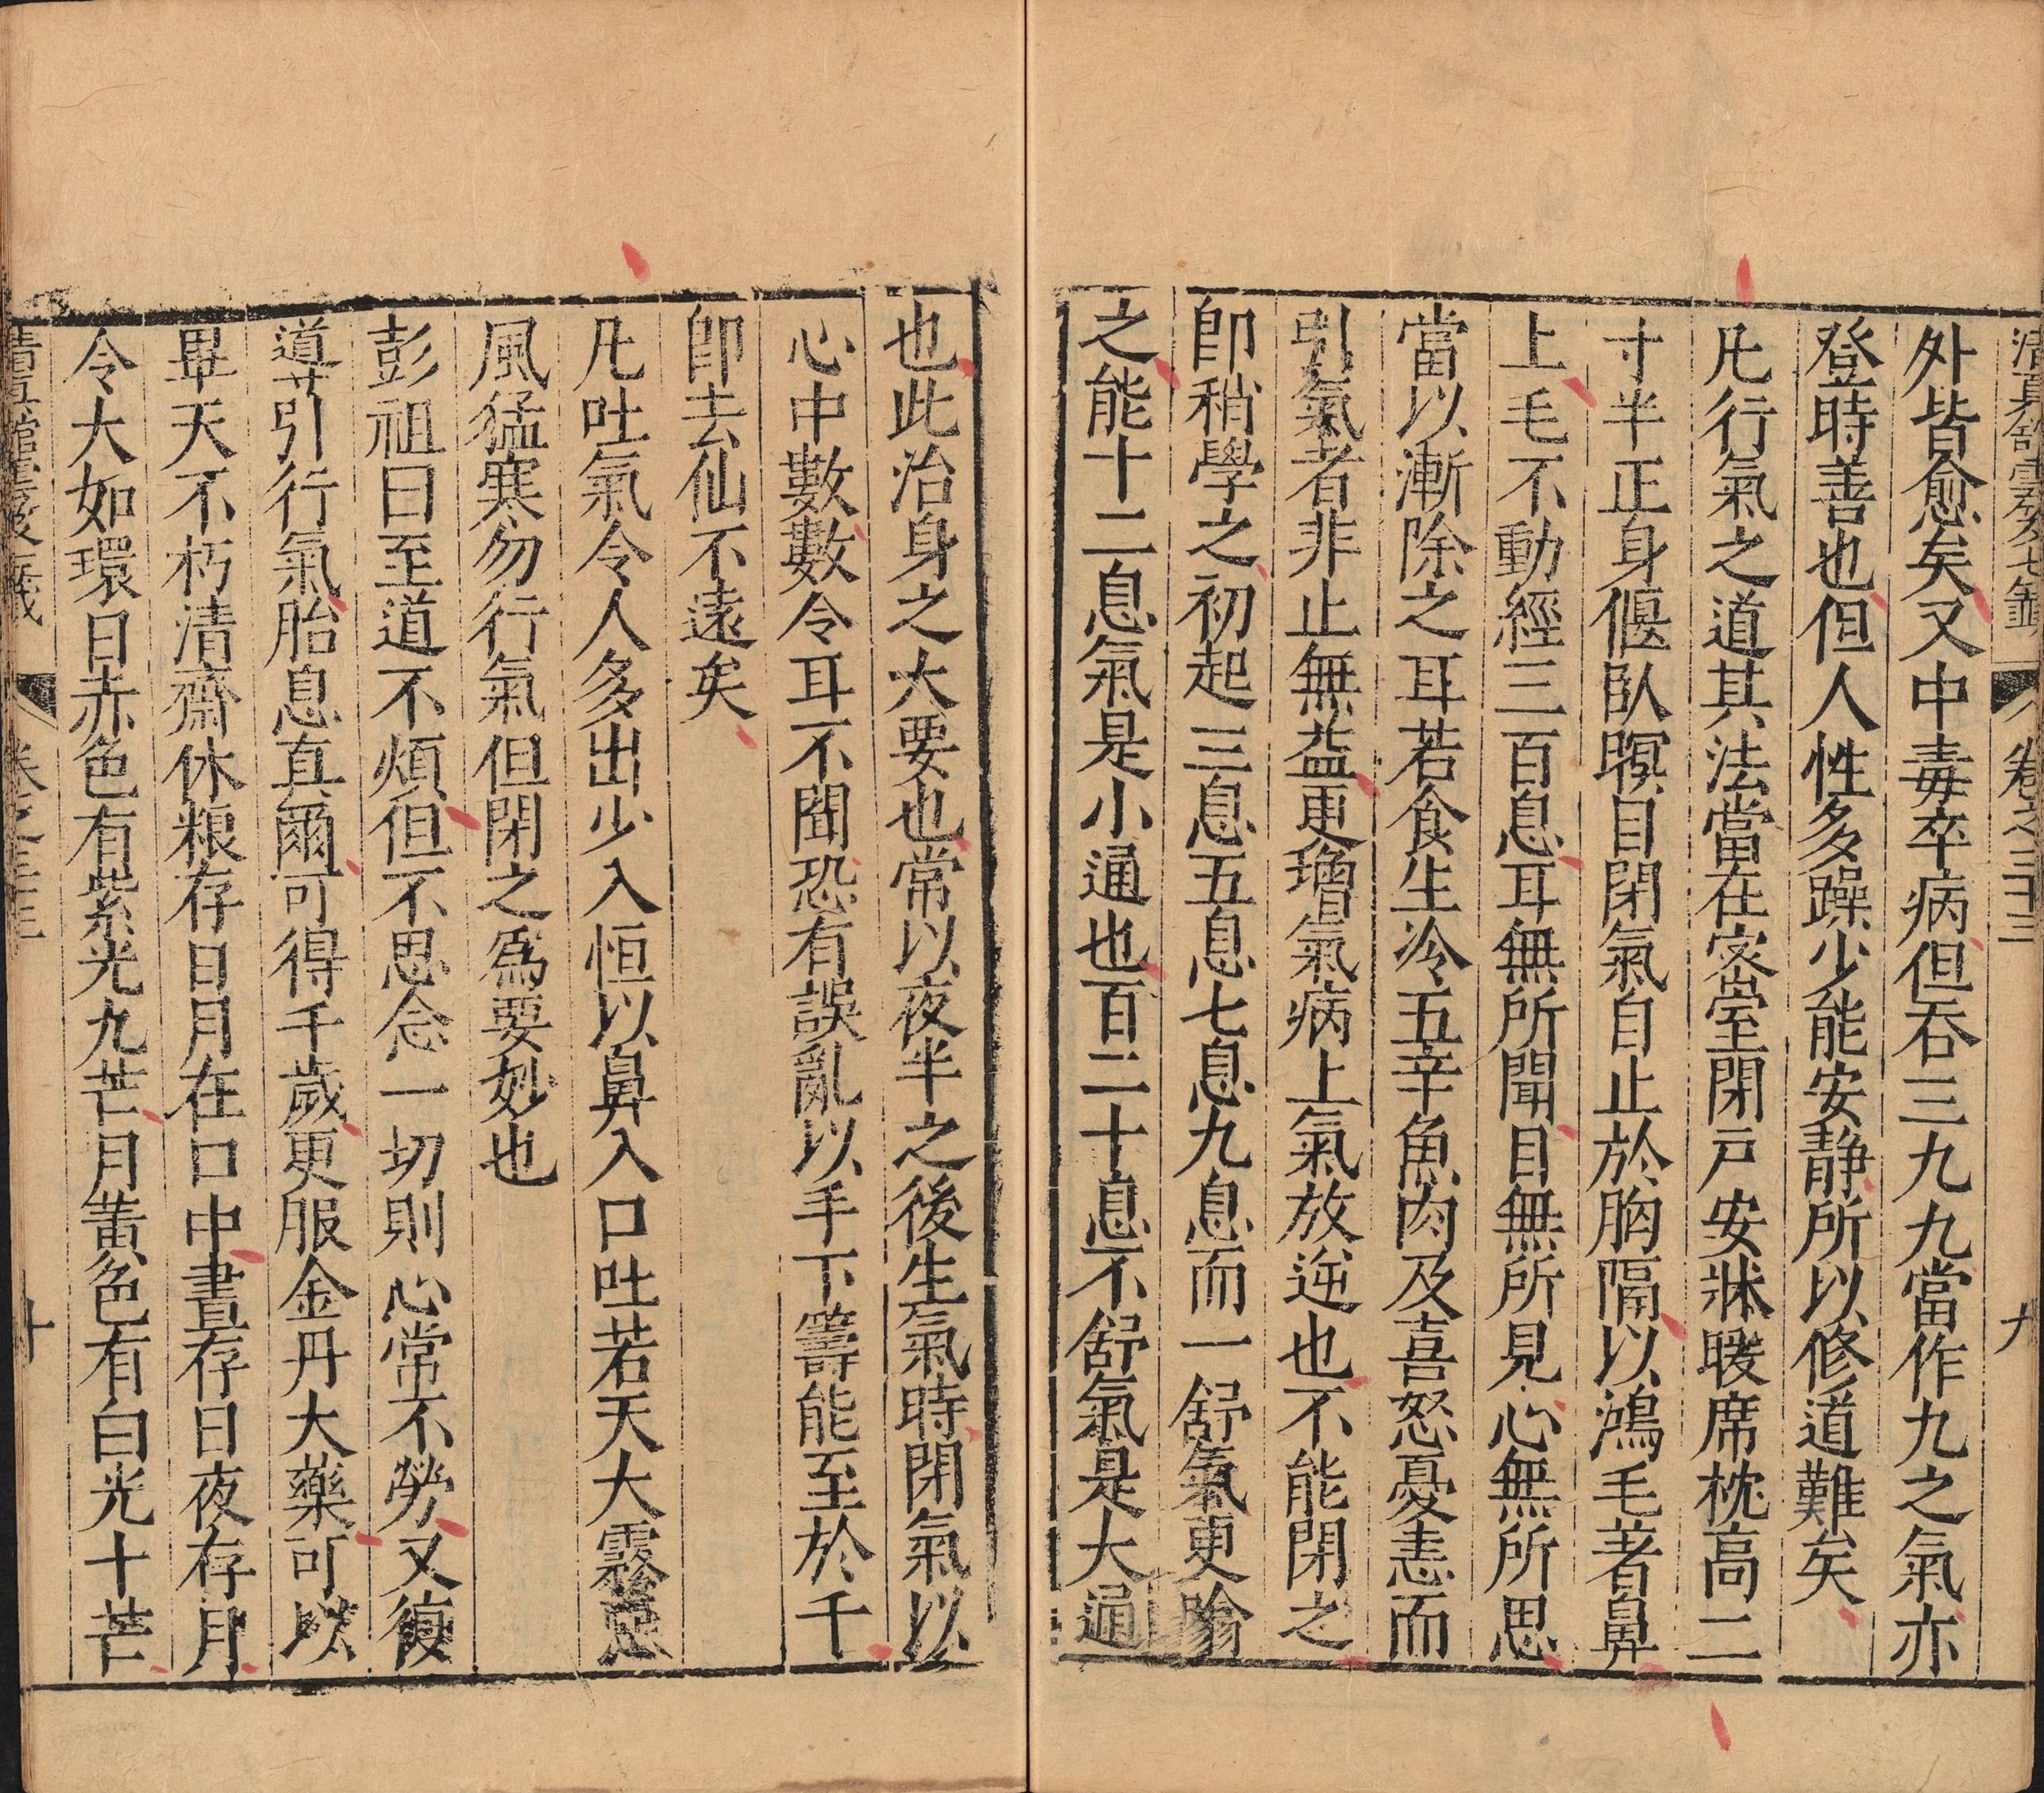 清真館雲笈七籤 卷之三十三 九
外皆愈矣又中毒卒病但吞三九九當作九之氣亦
登時善也但人性多躁少能安靜所以修道難矣
凡行氣之道其法當在密室閉戸安牀暖席枕高二
寸半正身偃臥瞑目閉氣自止於胸隔以鴻毛著鼻
上毛不動經三百息耳無所聞目無所見心無所思
當以漸除之耳若食生冷五辛魚肉及喜怒憂恚而
引氣者非止無益更增氣病上氣放逆也不能閉之
卽稍學之初起三息五息七息九息而一舒氣更噏
之能十二息氣是小通也百二十息不舒氣是大通
也此治身之大要也常以夜半之後生氣時閉氣以
心中數數令耳不聞恐有誤亂以手下籌能至於千
卽去仙不遠矣
凡吐氣令人多出少入恒以鼻入口吐若天大霧惡
風猛寒勿行氣但閉之爲要妙也
彭祖曰至道不煩但不思念一切則心常不勞又復
道引行氣胎息真爾可得千歲更服金丹大藥可以
畢天不朽清齋休粮存日月在口中晝存日夜存月
令大如環日赤色有紫光九芒月黃色有白光十芒
清真館雲笈七籤 卷之三十三 十